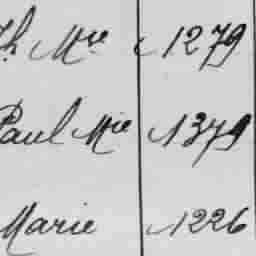 Th Mie 1279
Paul Mie 1379
Marie 1226